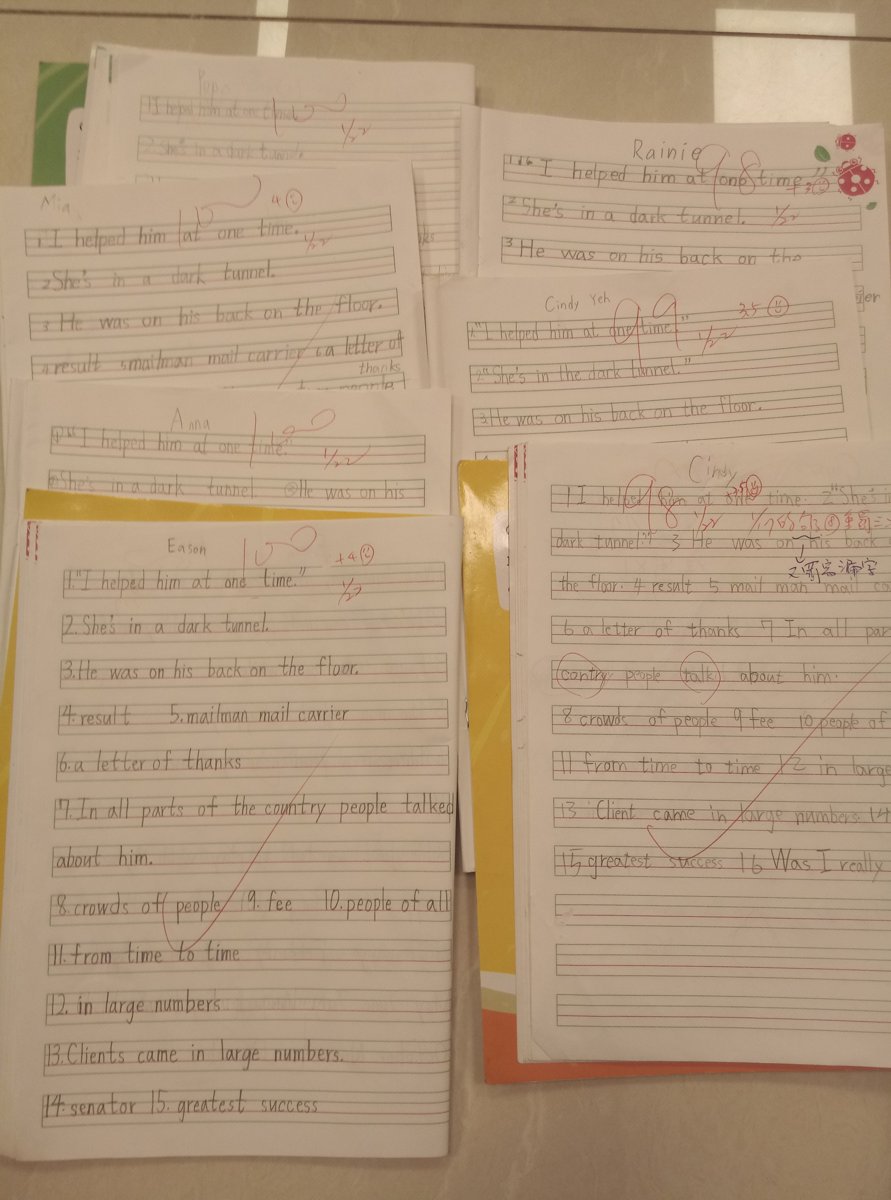 1 I helped him at one
1/22
2. She's in a dark tunnel.
Rainie
98
1 "I helped him at one time."
2 She's in a dark tunnel.
1/22
3 He was on his back on the
Mia
100
4
1 "I helped him at one time.
1/22
2 She's in a dark tunnel.
3 He was on his back on the floor.
4 result 5 mailman mail carrier 6 a letter of
thanks
Cindy Yeh
99
3.5
1. "I helped him at one time."
1/22
2 "She's in the dark tunnel."
3 He was on his back on the floor.
Anna
100
1 "I helped him at one time."
1/22
2 She's in a dark tunnel. 3 He was on his
Eason
100
+4
1. "I helped him at one time."
1/22
2. She's in a dark tunnel.
3. He was on his back on the floor.
4. result 5. mailman mail carrier
6. a letter of thanks
7. In all parts of the country people talked
about him.
8. crowds of people 9. fee 10. people of all
11. from time to time
12. in large numbers
13. Clients came in large numbers.
14. senator 15. greatest success
Cindy
98
1 I helped him at time. 2 "She's
1/22 1/17的
dark tunnel." 3 He was on his back
the floor. 4 result 5 mail man mail
6 a letter of thanks 7 In all
contry people talk about him.
8 crowds of people 9 fee 10 people of
11 from time to time 12 in large
13 Client came in large numbers 14
15 greatest success 16 Was I really